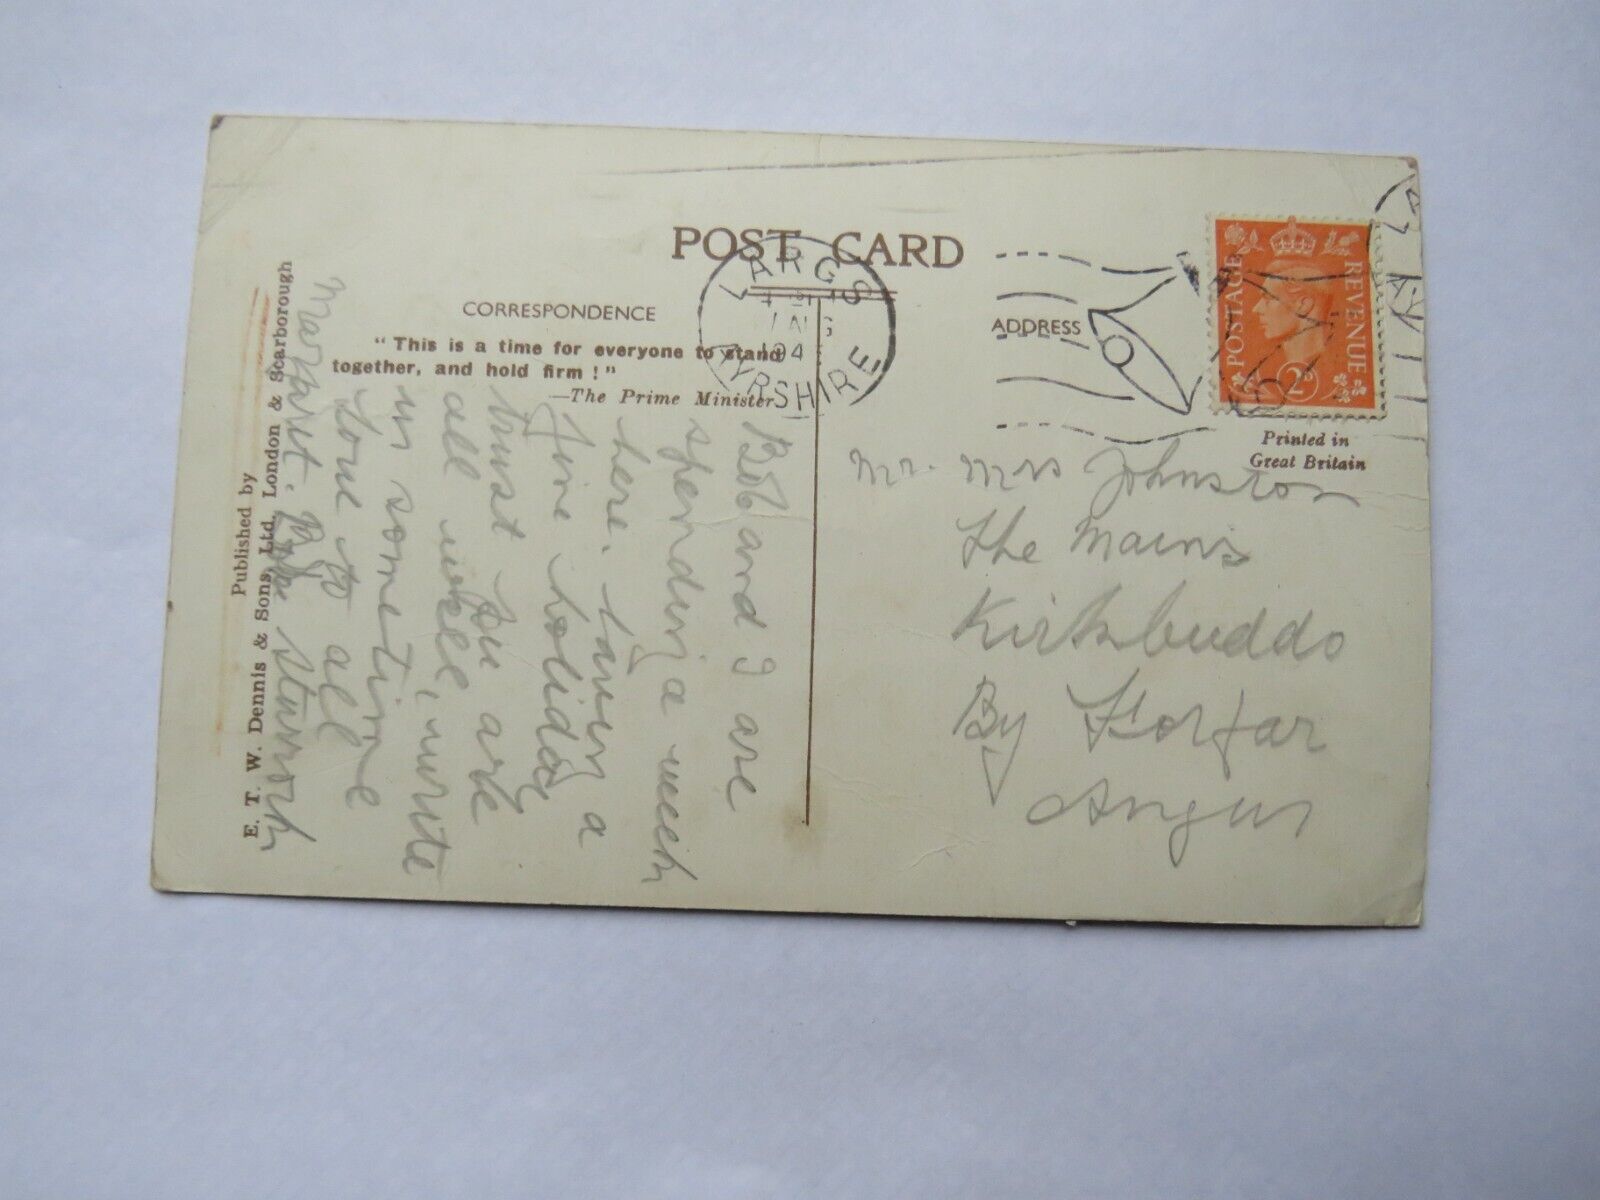 POST CARD
CORRESPONDENCE
"This is a time for everyone to stand
together, and hold firm!"
—The Prime Minister
ADDRESS
LARGS
AYRSHIRE
194
POSTAGE
REVENUE
2D
Printed in
Great Britain
Published by
E. T. W. Dennis & Sons, Ltd. London & Scarborough
Bob and I are
spending a week
here. having a
fine holiday
trust you are
all well, write
in sometime
Love to all
Margaret. Sturrock
Mr. Mrs Johnston
The Mains
Kirkbuddo
By Forfar
Angus